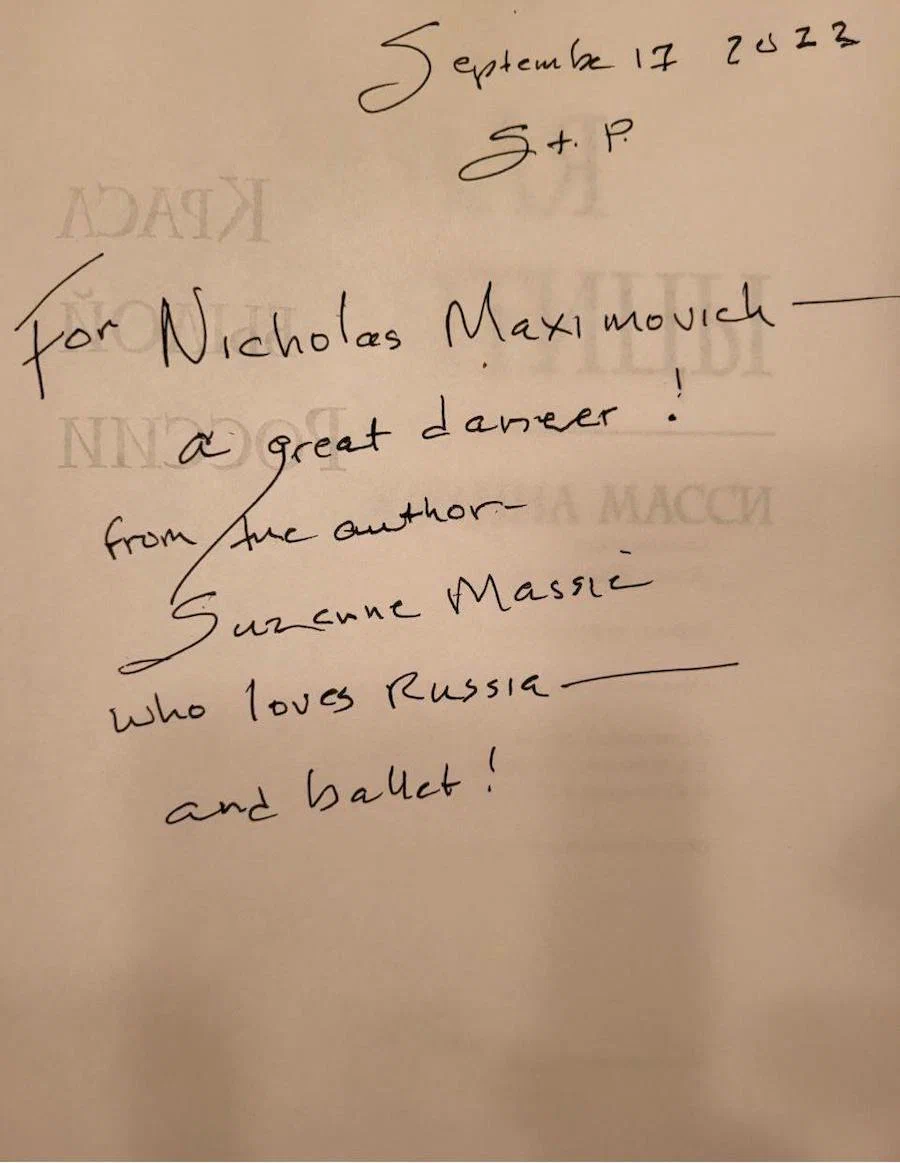 September 17 2023
St. P.
For Nicholas Maximovich —
a great dancer!
from the author-
Suzanne Massie
who loves Russia —
and ballet!
КРАСА
РОССИИ
МАССИ